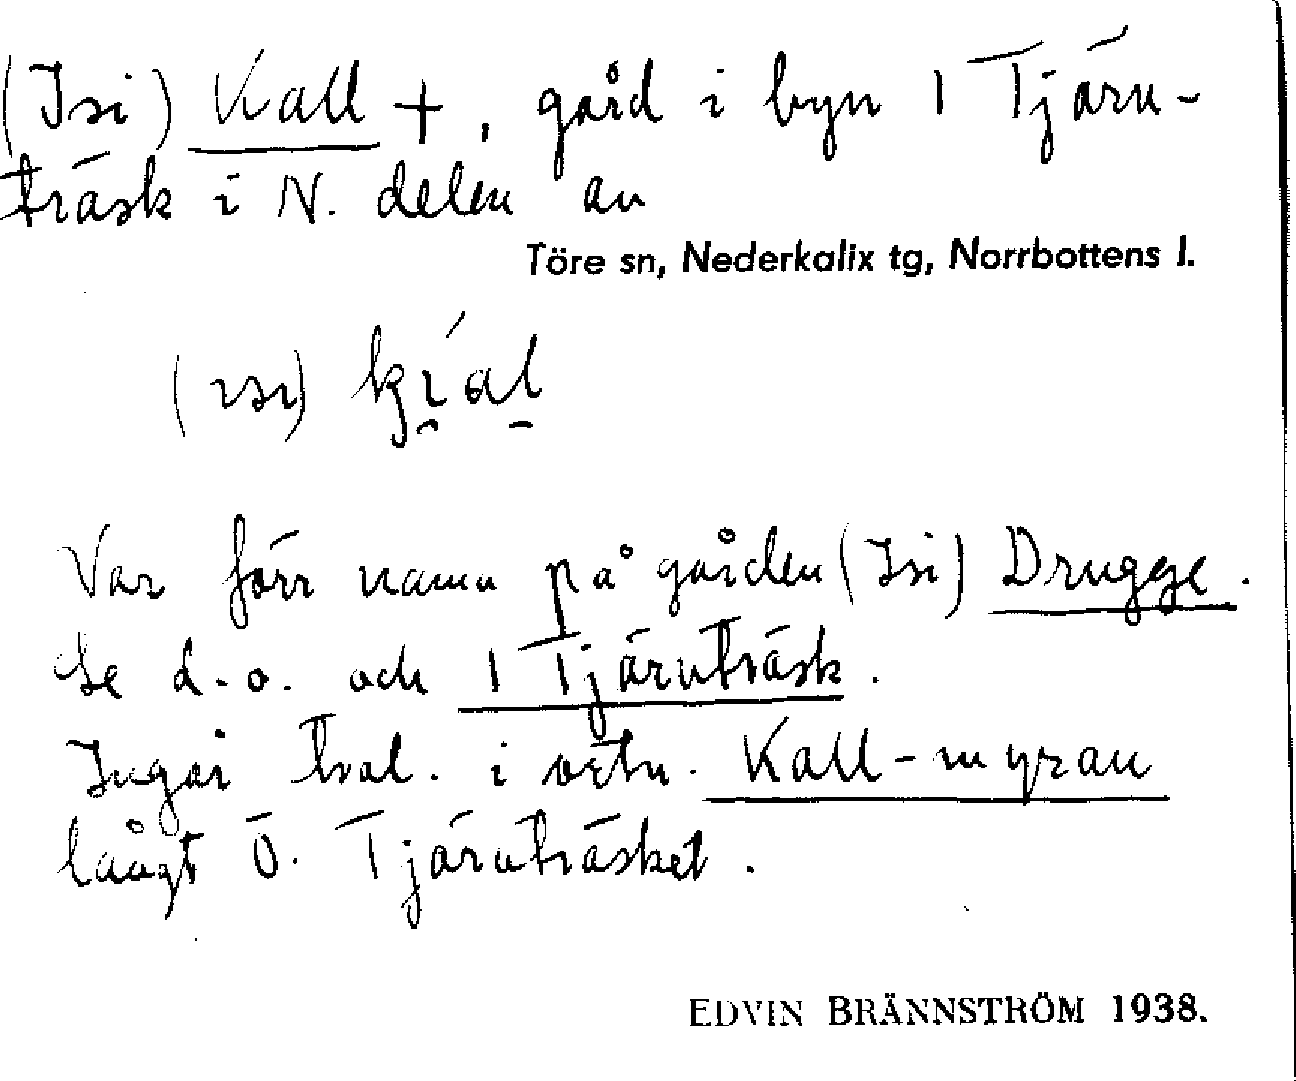 (Isi) Kall +, gård i byn 1 Tjärn-
träsk i N. delen av
Töre sn, Nederkalix tg, Norrbottens l.
(ısı)
Var förr namn på gården (Isi) Drugge.
Se d. o. och 1 Tjärnträsk.
Ingår tvål. i ortn. Kall-myran
långt Ö. Tjärnträsket.
EDVIN BRÄNNSTRÖM 1938.